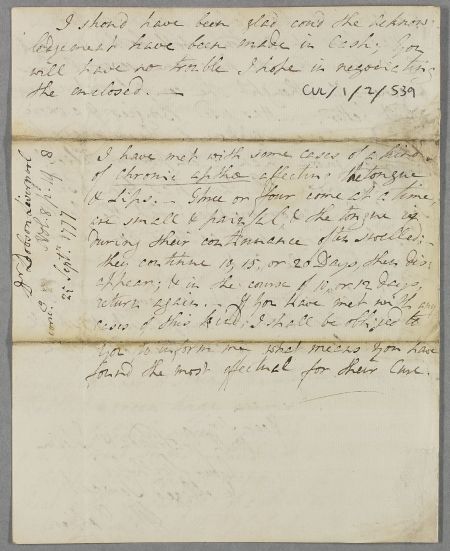 I should have been glad could the acknow-
ledgement have been made in Cash; You
will have no trouble I hope in negociating
the enclosed. —
CUL/1/2/539
I have met with some cases of a kind
of Chronic apthæ affecting the tongue
& Lips. — three or four come at a time,
are small & painful, & the tongue is
during their continuance often swelled; —
they continue 10, 15, or 20 Days, then dis-
appear; & in the course of 10 or 12 days,
return again. — If you have met with any
cases of this kind, I shall be obliged to
you to inform me what means you have
found the most effectual for their Cure.
Dr Dobson Liverpool
Vol: 8 p: 19 8
25 Septr 1777